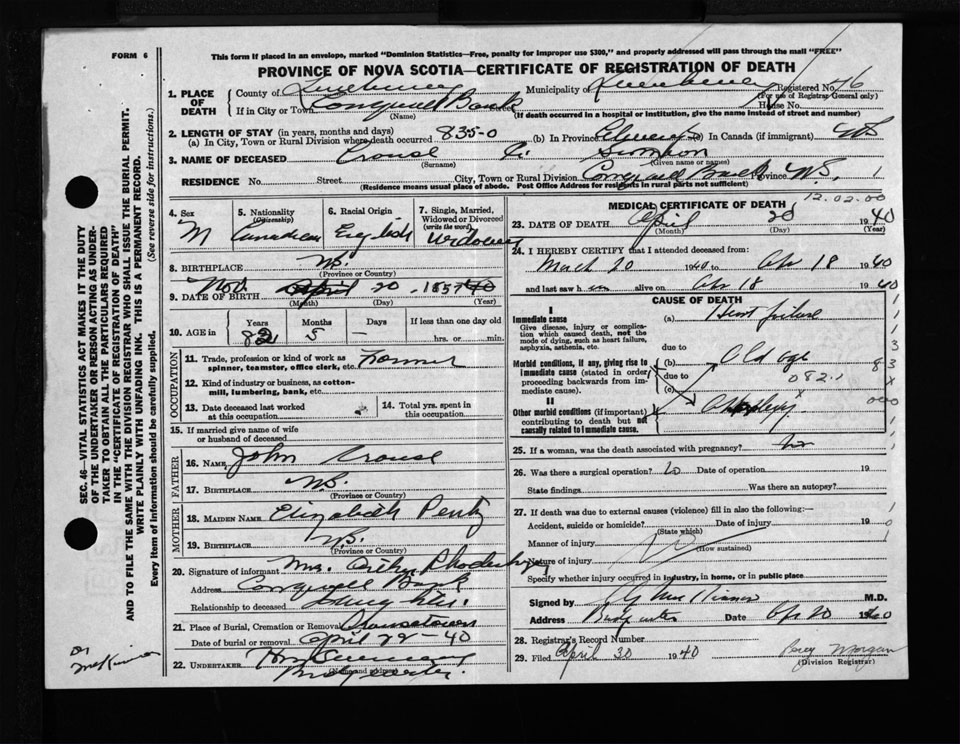 FORM 6
This form if placed in an envelope, marked "Dominion Statistics—Free, penalty for improper use $300," and properly addressed will pass through the mail "FREE"
PROVINCE OF NOVA SCOTIA—CERTIFICATE OF REGISTRATION OF DEATH
SEC. 46—VITAL STATISTICS ACT MAKES IT THE DUTY
OF THE UNDERTAKER OR PERSON ACTING AS UNDER-
TAKER TO OBTAIN ALL THE PARTICULARS REQUIRED
IN THE "CERTIFICATE OF REGISTRATION OF DEATH"
AND TO FILE THE SAME WITH THE DIVISION REGISTRAR WHO SHALL ISSUE THE BURIAL PERMIT.
WRITE PLAINLY WITH UNFADING INK. THIS IS A PERMANENT RECORD.
Every item of information should be carefully supplied. (See reverse side for instructions).
1. PLACE OF DEATH
County of Municipality of Lunenburg Registered No. 76
(For use of Registrar General only)
If in City or Town Conquerall Bank House No.
(Name) (If death occurred in a hospital or institution, give the name instead of street and number)
2. LENGTH OF STAY (in years, months and days)
(a) In City, Town or Rural Division where death occurred 83-5-0 (b) In Province (c) In Canada (if immigrant)
3. NAME OF DECEASED Crouse Simpson
(Surname) (Given name or names)
RESIDENCE No. Street City, Town or Rural Division Conquerall Bank Province N.S. 1
(Residence means usual place of abode. Post Office Address for residents in rural parts not sufficient)
4. Sex M
5. Nationality (Citizenship) Canadian
6. Racial Origin English
7. Single, Married, Widowed or Divorced (write the word) Widower
8. BIRTHPLACE N.S.
(Province or Country)
9. DATE OF BIRTH Nov. April 20 1857 40
(Month) (Day) (Year)
10. AGE in Years 82 Months 5 Days — If less than one day old
hrs. or min.
OCCUPATION
11. Trade, profession or kind of work as spinner, teamster, office clerk, etc. Farmer
12. Kind of industry or business, as cotton-mill, lumbering, bank, etc.
13. Date deceased last worked at this occupation
14. Total yrs. spent in this occupation
15. If married give name of wife or husband of deceased
FATHER
16. NAME John Crouse
17. BIRTHPLACE N.S.
(Province or Country)
MOTHER
18. MAIDEN NAME Elizabeth Pentz
19. BIRTHPLACE N.S.
(Province or Country)
20. Signature of informant Mrs.
Address Conquerall Bank
Relationship to deceased Daughter
21. Place of Burial, Cremation or Removal Crousetown
Date of burial or removal April 22-40
22. UNDERTAKER
(Name and address) Bridgewater
Dr McKinnon
MEDICAL CERTIFICATE OF DEATH
12.02.00
23. DATE OF DEATH April 20 1940
(Month) (Day) (Year)
24. I HEREBY CERTIFY that I attended deceased from:
March 20 1940 to Apr 18 1940
and last saw him alive on Apr 18 1940
CAUSE OF DEATH
I
Immediate cause
Give disease, injury or complication which caused death, not the mode of dying, such as heart failure, asphyxia, asthenia, etc.
(a) Heart failure
due to
Morbid conditions, if any, giving rise to immediate cause (stated in order proceeding backwards from immediate cause).
(b) Old age
due to 082.1
(c)
II
Other morbid conditions (if important) contributing to death but not causally related to immediate cause.
Apoplexy
25. If a woman, was the death associated with pregnancy?
26. Was there a surgical operation? Date of operation 19
State findings Was there an autopsy?
27. If death was due to external causes (violence) fill in also the following:—
Accident, suicide or homicide? Date of injury 19
(State which)
Manner of injury
(How sustained)
Nature of injury
Specify whether injury occurred in industry, in home, or in public place
Signed by M.D.
Address Bridgewater Apr 20 1940
28. Registrar's Record Number
29. Filed April 30 1940 Percy Morgan
(Division Registrar)